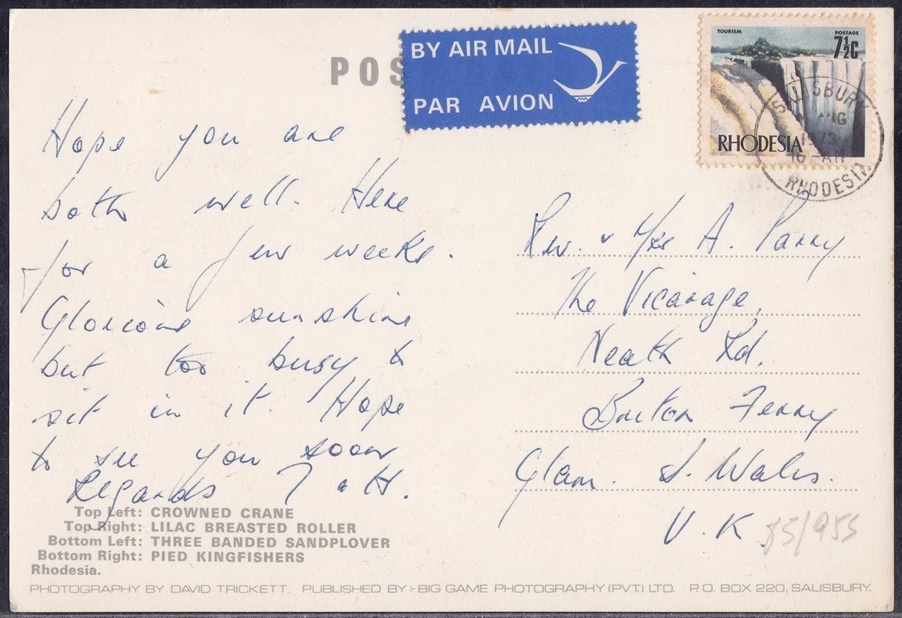 POS
BY AIR MAIL
PAR AVION
TOURISM
POSTAGE
7½c
RHODESIA
SALISBURY
AUG
1973
10-AM
RHODESIA
Hope you are
both well. Here
for a few weeks.
Glorious sunshine
but too busy to
sit in it. Hope
to see you soon
Regards
Rev. & Mrs A. Parry
The Vicarage,
Neath Rd.
Briton Ferry
Glam. S. Wales.
U.K.
85/955
Top Left: CROWNED CRANE
Top Right: LILAC BREASTED ROLLER
Bottom Left: THREE BANDED SANDPLOVER
Bottom Right: PIED KINGFISHERS
Rhodesia.
PHOTOGRAPHY BY DAVID TRICKETT. PUBLISHED BY:- BIG GAME PHOTOGRAPHY (PVT.) LTD. P.O. BOX 220, SALISBURY.